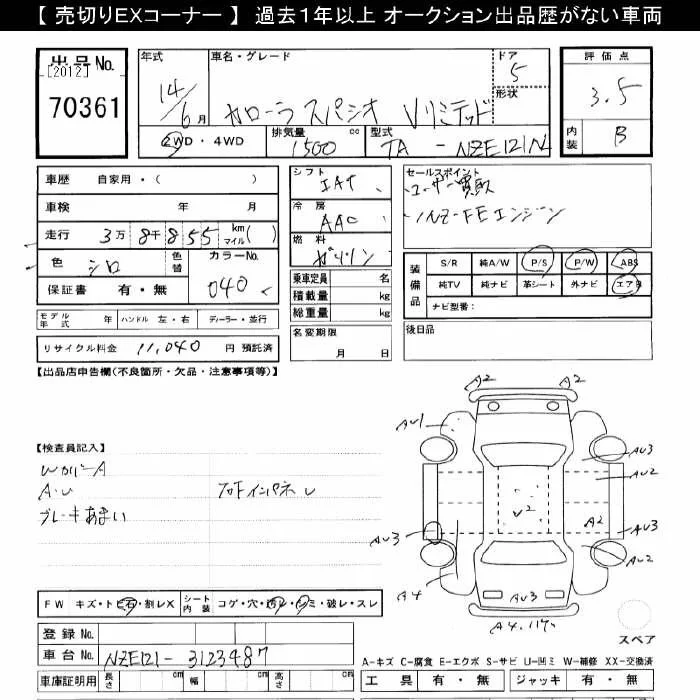 【 売切りEXコーナー 】 過去１年以上 オークション出品歴がない車両
出品 No. 年式 車名・グレード ドア 評価点
[2012] 14/6月 カローラ スパシオ Vリミテッド 5 3.5
70361 形状
2WD・4WD 排気量 1500 cc 型式 TA - NZE121N 内装 B
車歴 自家用・( ) シフト IAT セールスポイント
車検 年 月 冷房 AAC ユーザー買取
走行 3万 8千 855 km マイル ( ) 1NZ-FEエンジン
色 シロ 色替 カラーNo. 040 燃料 ガソリン
保証書 有・無 乗車定員 名 装備品 S/R 純A/W P/S P/W ABS
積載量 kg 純TV 純ナビ 革シート 外ナビ エアB
モデル年式 年 ハンドル 左・右 ディーラー・並行 総重量 kg ナビ型番:
リサイクル料金 11,040 円 預託済 名変期限 月 日 後日品
【出品店申告欄(不良箇所・欠品・注意事項等)】
A2 A2
AU1
【検査員記入】 AU3
WカバーA AU2
A・U フロアインパネ
ブレーキあまい V2 A2
AU3 AU3
AU2
A4 AU3
FW キズ・トビ石・割レX シート内装 コゲ・穴・汚レ・シミ・破レ・スレ
A4.
登録 No. スペア
車台 No. NZE121-3123487
A-キズ C-腐食 E-エクボ S-サビ U-凹ミ W-補修 XX-交換済
車庫証明用 長さ cm 幅 cm 高さ cm 工具 有・無 ジャッキ 有・無